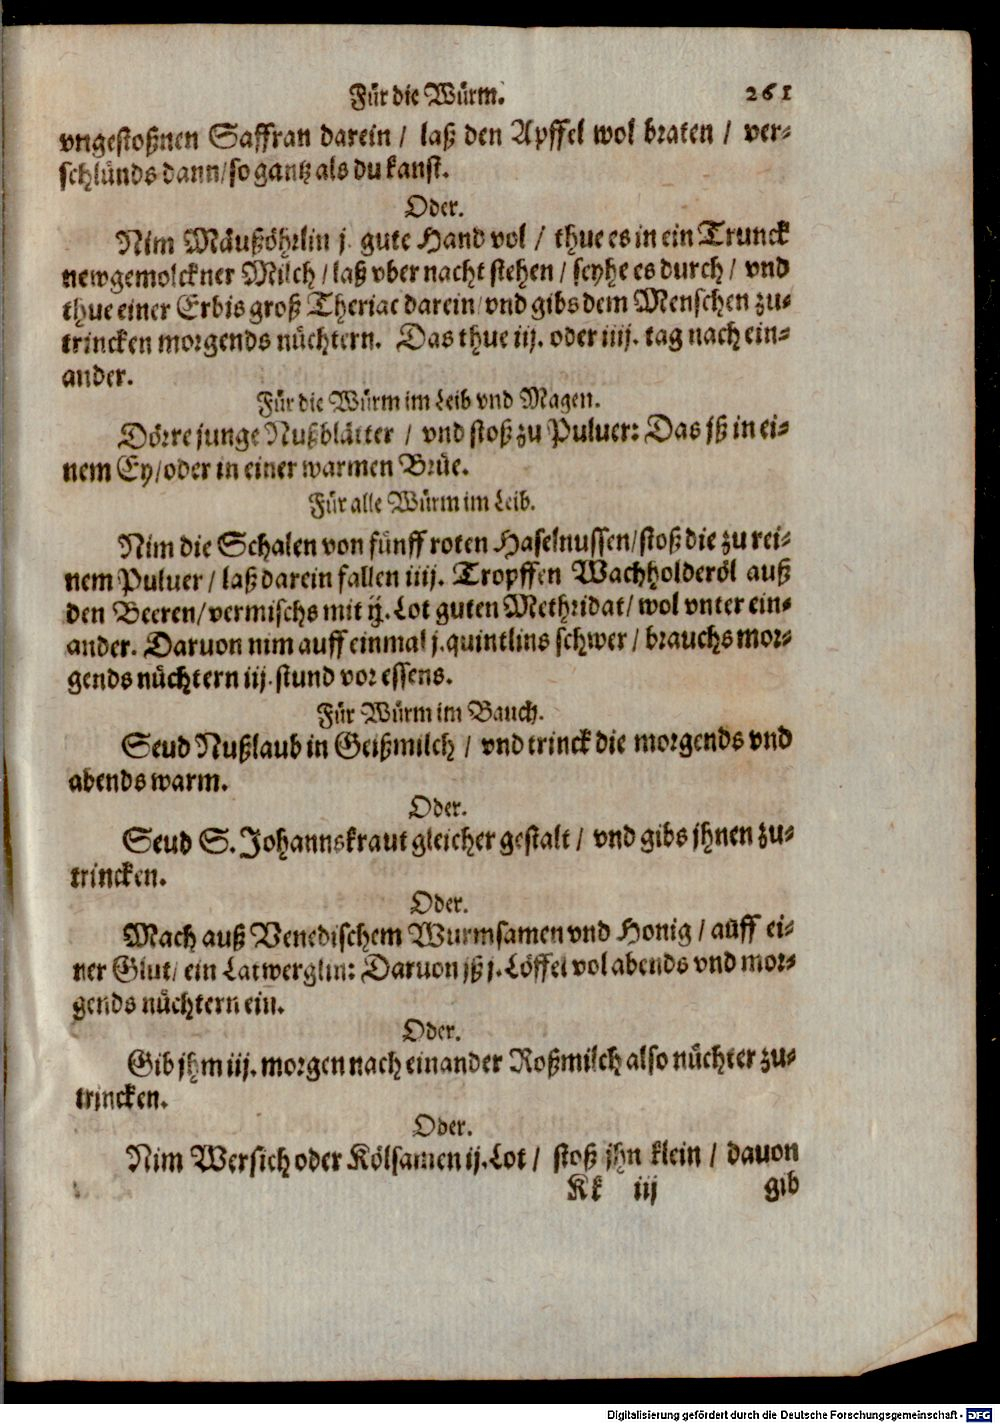 Für die Würm. 261
vngestoßnen Saffran darein / laß den Apffel wol braten / ver-
schlünds dann / so gantz als du kanst.
Oder.
Nim Mäußöhrlin j. gute Hand vol / thue es in ein Trunck
newgemolckner Milch / laß vber nacht stehen / seyhe es durch / vnd
thue einer Erbis groß Theriac darein / vnd gibs dem Menschen zu-
trincken morgends nüchtern. Das thue iij. oder iiij. tag nach ein-
ander.
Für die Würm im Leib vnd Magen.
Dörre junge Nußblätter / vnd stoß zu Puluer: Das jß in ei-
nem Ey / oder in einer warmen Brüe.
Für alle Würm im Leib.
Nim die Schalen von fünff roten Haselnussen / stoß die zu rei-
nem Puluer / laß darein fallen iiij. Tropffen Wachholderöl auß
den Beeren / vermischs mit ij. Lot guten Methridat / wol vnter ein-
ander. Daruon nim auff einmal j. quintlins schwer / brauchs mor-
gends nüchtern iij. stund vor essens.
Für Würm im Bauch.
Seud Nußlaub in Geißmilch / vnd trinck die morgends vnd
abends warm.
Oder.
Seud S. Johannskraut gleicher gestalt / vnd gibs jhnen zu-
trincken.
Oder.
Mach auß Venedischem Wurmsamen vnd Honig / auff ei-
ner Glut / ein Latwerglin: Daruon jß j. Löffel vol abends vnd mor-
gends nüchtern ein.
Oder.
Gib jhm iij. morgen nach einander Roßmilch also nüchter zu-
trincken.
Oder.
Nim Wersich oder Kölsamen ij. Lot / stoß jhn klein / dauon
Kk iij gib
Digitalisierung gefördert durch die Deutsche Forschungsgemeinschaft - DFG